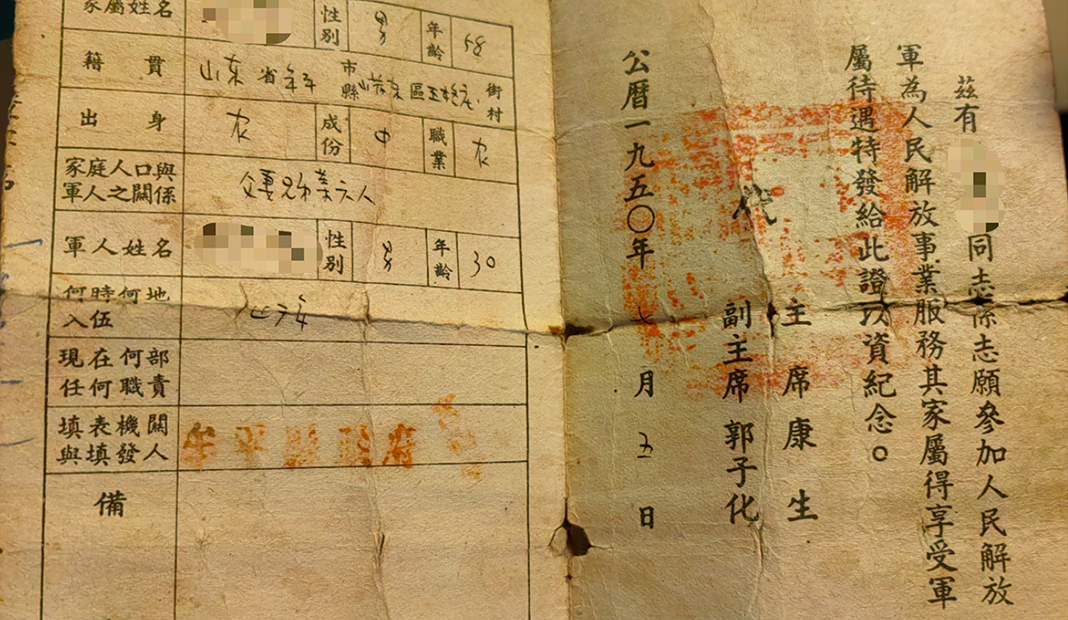 茲有
同志係志願參加人民解放
軍為人民解放事業服務其家屬得享受軍
屬待遇特發給此證以資紀念。
主席康生
代
副主席郭子化
公曆一九五〇年
月五日
家屬姓名 性別 男 年齡 58
籍貫 山東省牟平市縣 區 街村
出身 农 成份 中 職業 农
家庭人口與
軍人之關係 六人
軍人姓名 性別 男 年齡 30
何時何地
入伍
現在何部
任何職責
填表機關
與填發人 牟平縣政府
備